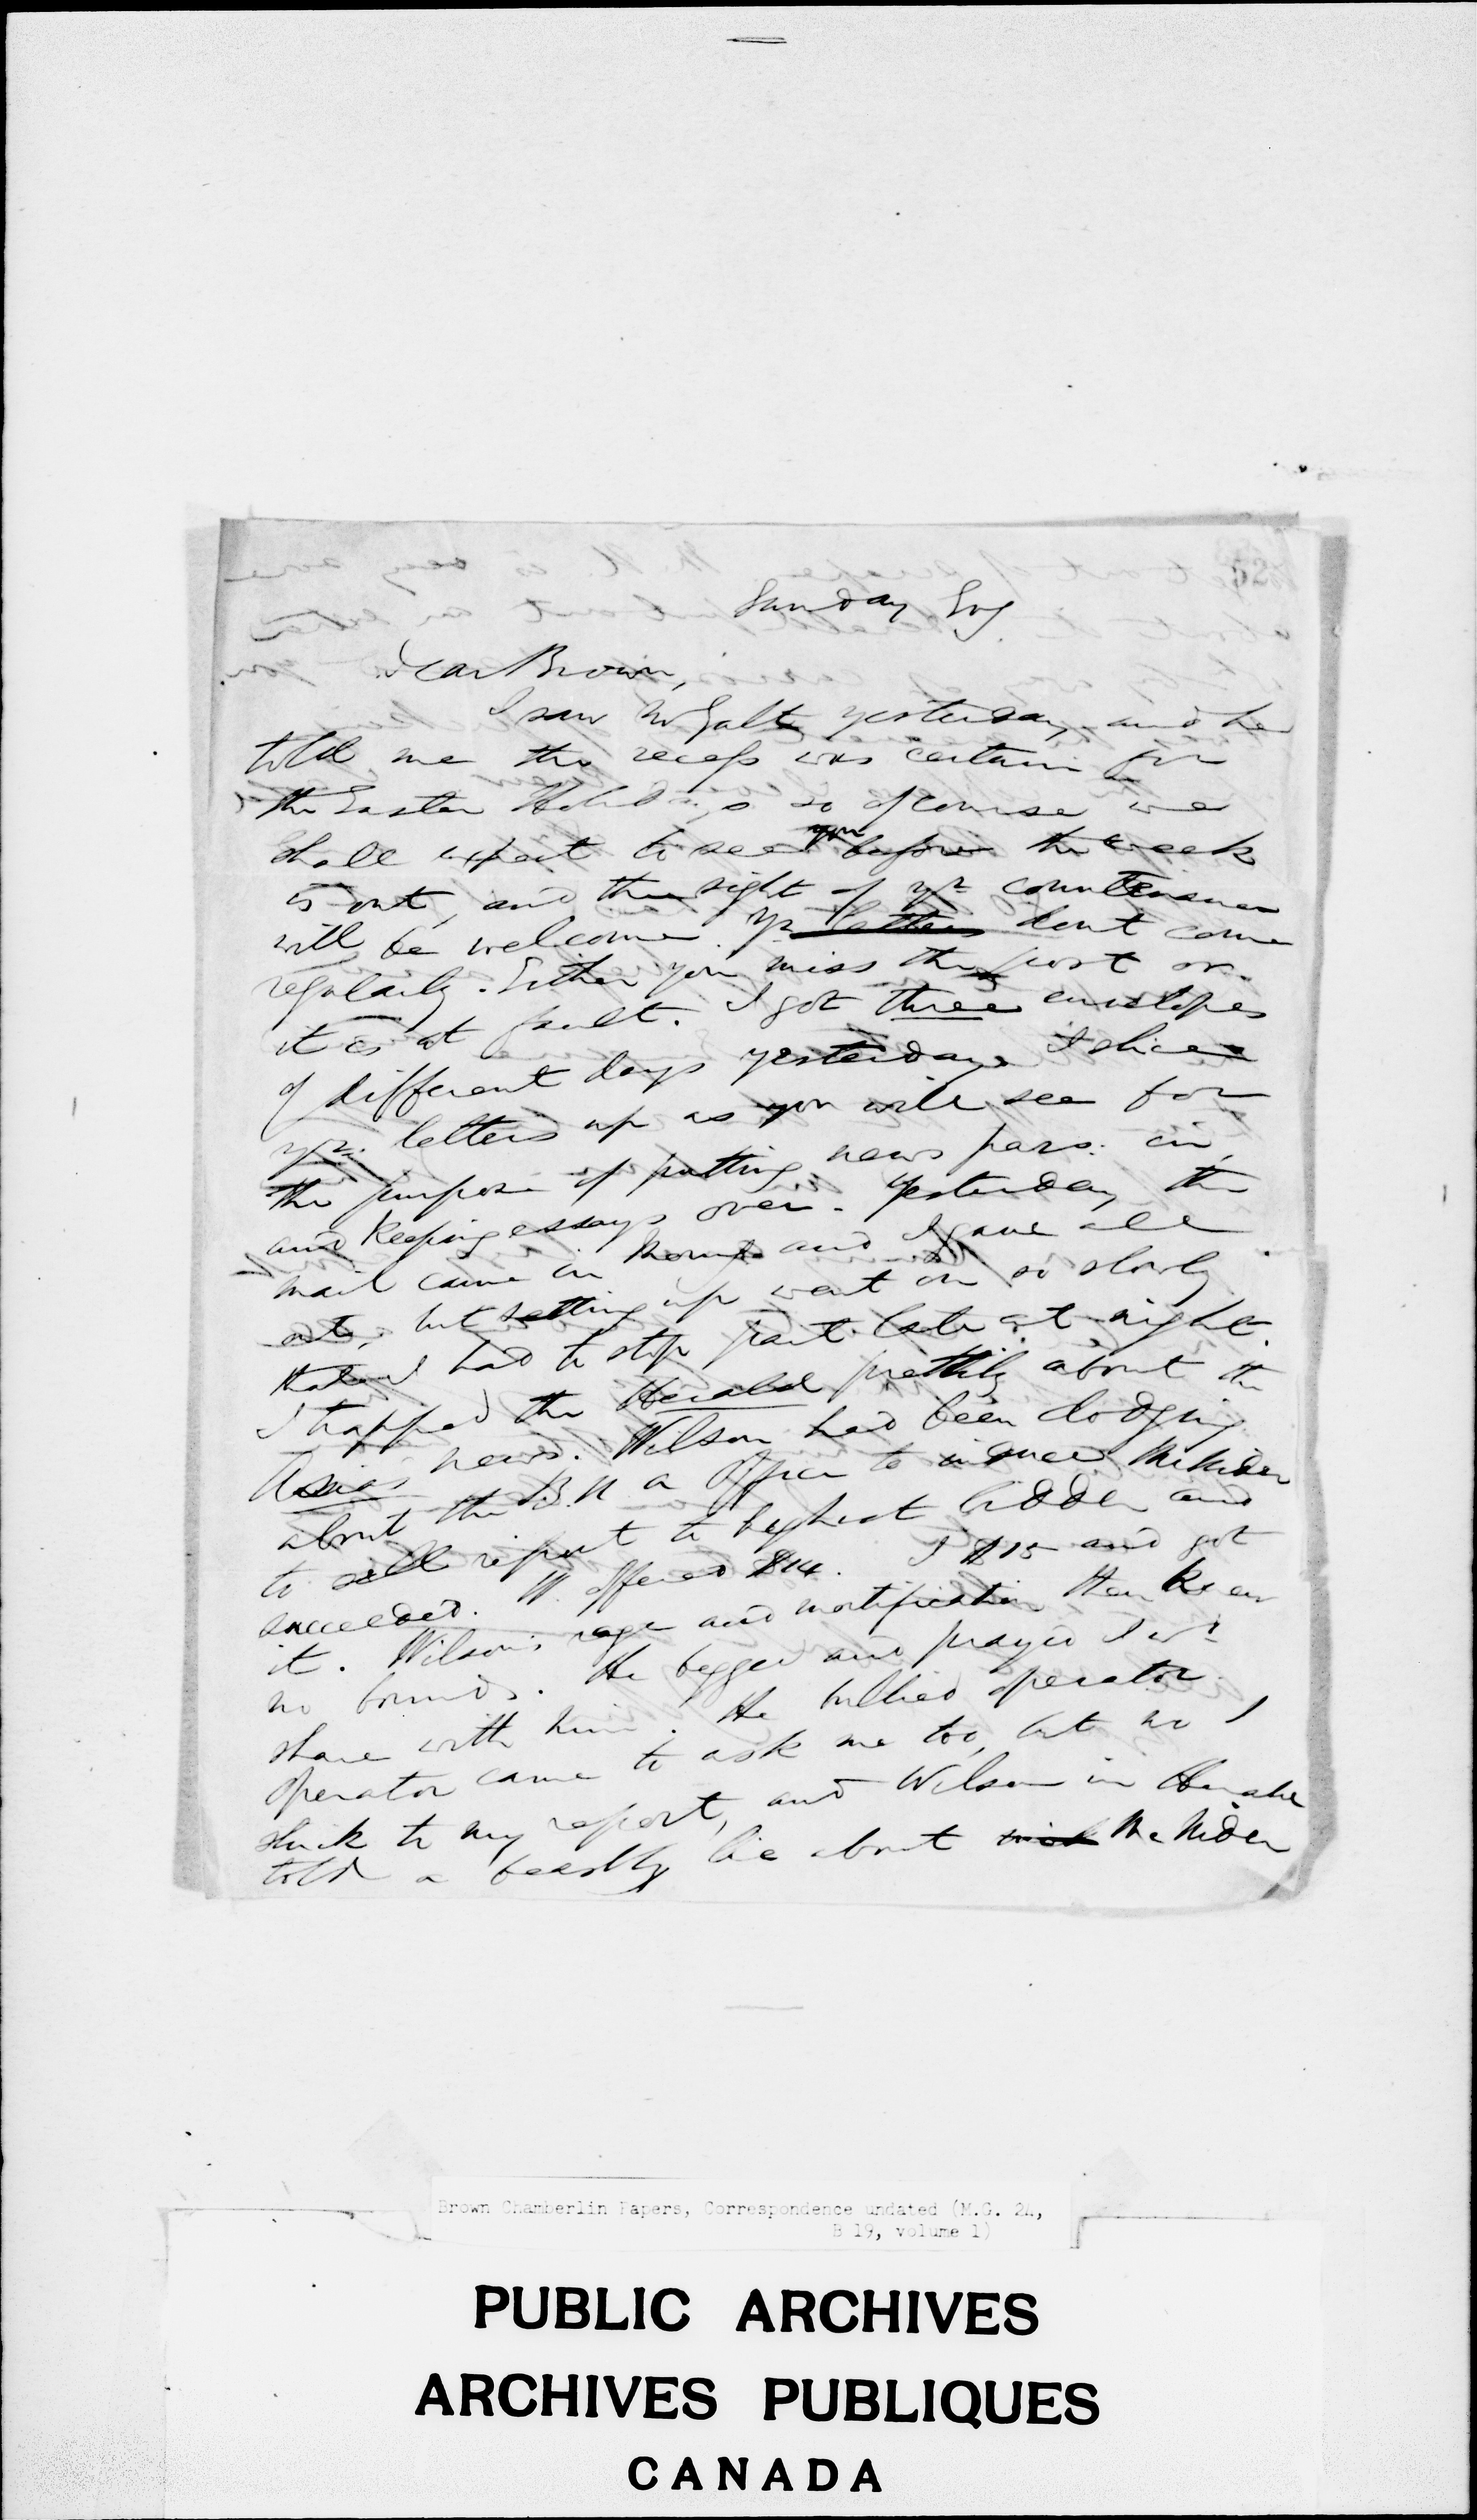 52
Sunday Evg
Dear Brown,
I saw Mr Galt yesterday and he
told me the recess was certain for
the Easter Holidays so of course we
shall expect to see you before the week
is out, and the sight of yr countenance
will be welcome. Yr letters dont come
regularly. Either you miss the post or
it is at fault. I got three envelopes
of different days yesterday. I slice
yr. letters up as you will see for
the purpose of putting news pars. in,
and keeping essays over. Yesterday the
mail came in and I gave all
out, but setting up went on so slowly
that I had to stop part late at night.
I trapped the Herald prettily about the
Asia's news. Wilson had been dodging
about the B.N a Office to induce McNider
to sell report to highest bidder and
succeeded. W. offered $14. I $15 and got
it. Wilson's rage and mortification then knew
no bounds. He begged and prayed I wd
share with him. He bullied operator.
Operator came to ask me too, but no I
stuck to my report, and Wilson in Herald
told a beastly lie about McNider
Brown Chamberlin Papers, Correspondence undated (M.G. 24,
B 19, volume 1)
PUBLIC ARCHIVES
ARCHIVES PUBLIQUES
CANADA